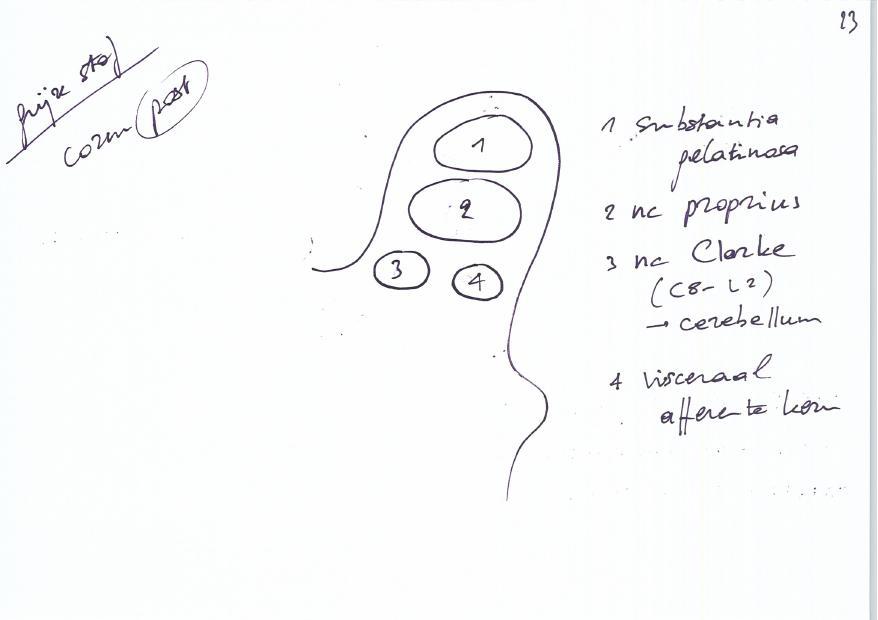 23
grijze stof
cornu post
1 substantia
gelatinosa
2 nc proprius
3 nc Clarke
(C8-L2)
→ cerebellum
4 visceraal
afferente kern
1
2
3
4